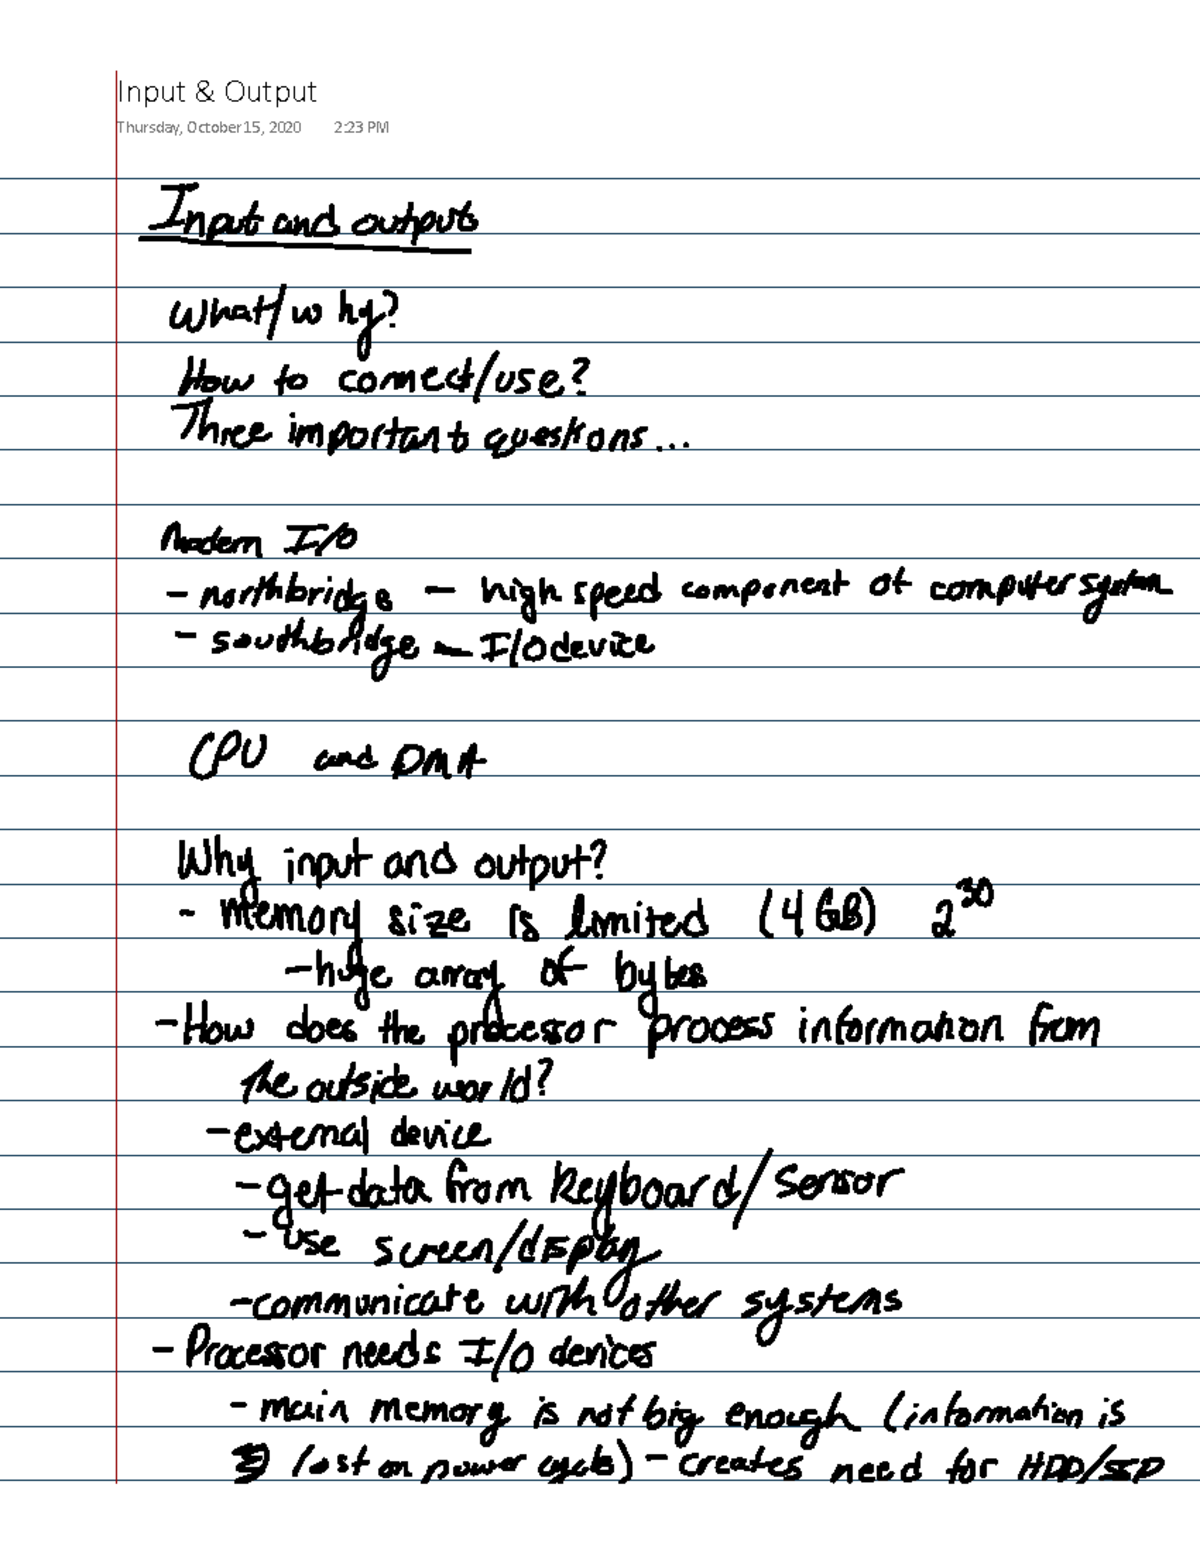 Input & Output
Thursday, October 15, 2020 2:23 PM
Input and output
What/why?
How to connect/use?
Three important questions...
Modern I/O
- northbridge - high speed component of computer system
- southbridge - I/O device
CPU and DMA
Why input and output?
- memory size is limited (4 GB) 2^30
- huge array of bytes
- How does the processor process information from
the outside world?
- external device
- get data from keyboard/sensor
- use screen/display
- communicate with other systems
- Processor needs I/O devices
- main memory is not big enough (information is
lost on power cycle) - creates need for HDD/SSD